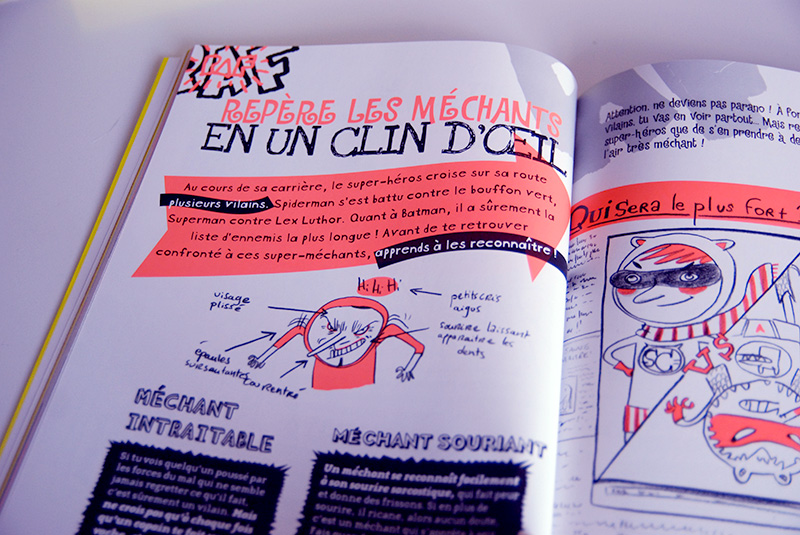 PAF
REPÈRE LES MÉCHANTS
EN UN CLIN D'ŒIL
Au cours de sa carrière, le super-héros croise sur sa route
plusieurs vilains. Spiderman s'est battu contre le bouffon vert,
Superman contre Lex Luthor. Quant à Batman, il a sûrement la
liste d'ennemis la plus longue ! Avant de te retrouver
confronté à ces super-méchants, apprends à les reconnaître !
Hi Hi Hi
visage
plissé
petits cris
aigus
sourire laissant
apparaître les
dents
épaules
sursautantes
cou rentré
MÉCHANT
INTRAITABLE
Si tu vois quelqu'un poussé par
les forces du mal qui ne semble
jamais regretter ce qu'il fait,
c'est sûrement un vilain. Mais
ne crois pas qu'à chaque fois
qu'un copain te fait
MÉCHANT SOURIANT
Un méchant se reconnaît facilement
à son sourire sarcastique, qui fait peur
et donne des frissons. Si en plus de
sourire, il ricane, alors aucun doute
c'est un méchant qui s'apprête à
Attention, ne deviens pas parano ! À
vilains, tu vas en voir partout... Mais
super-héros que de s'en prendre à
l'air très méchant !
Qui sera le plus fort ?
SC
VS
A